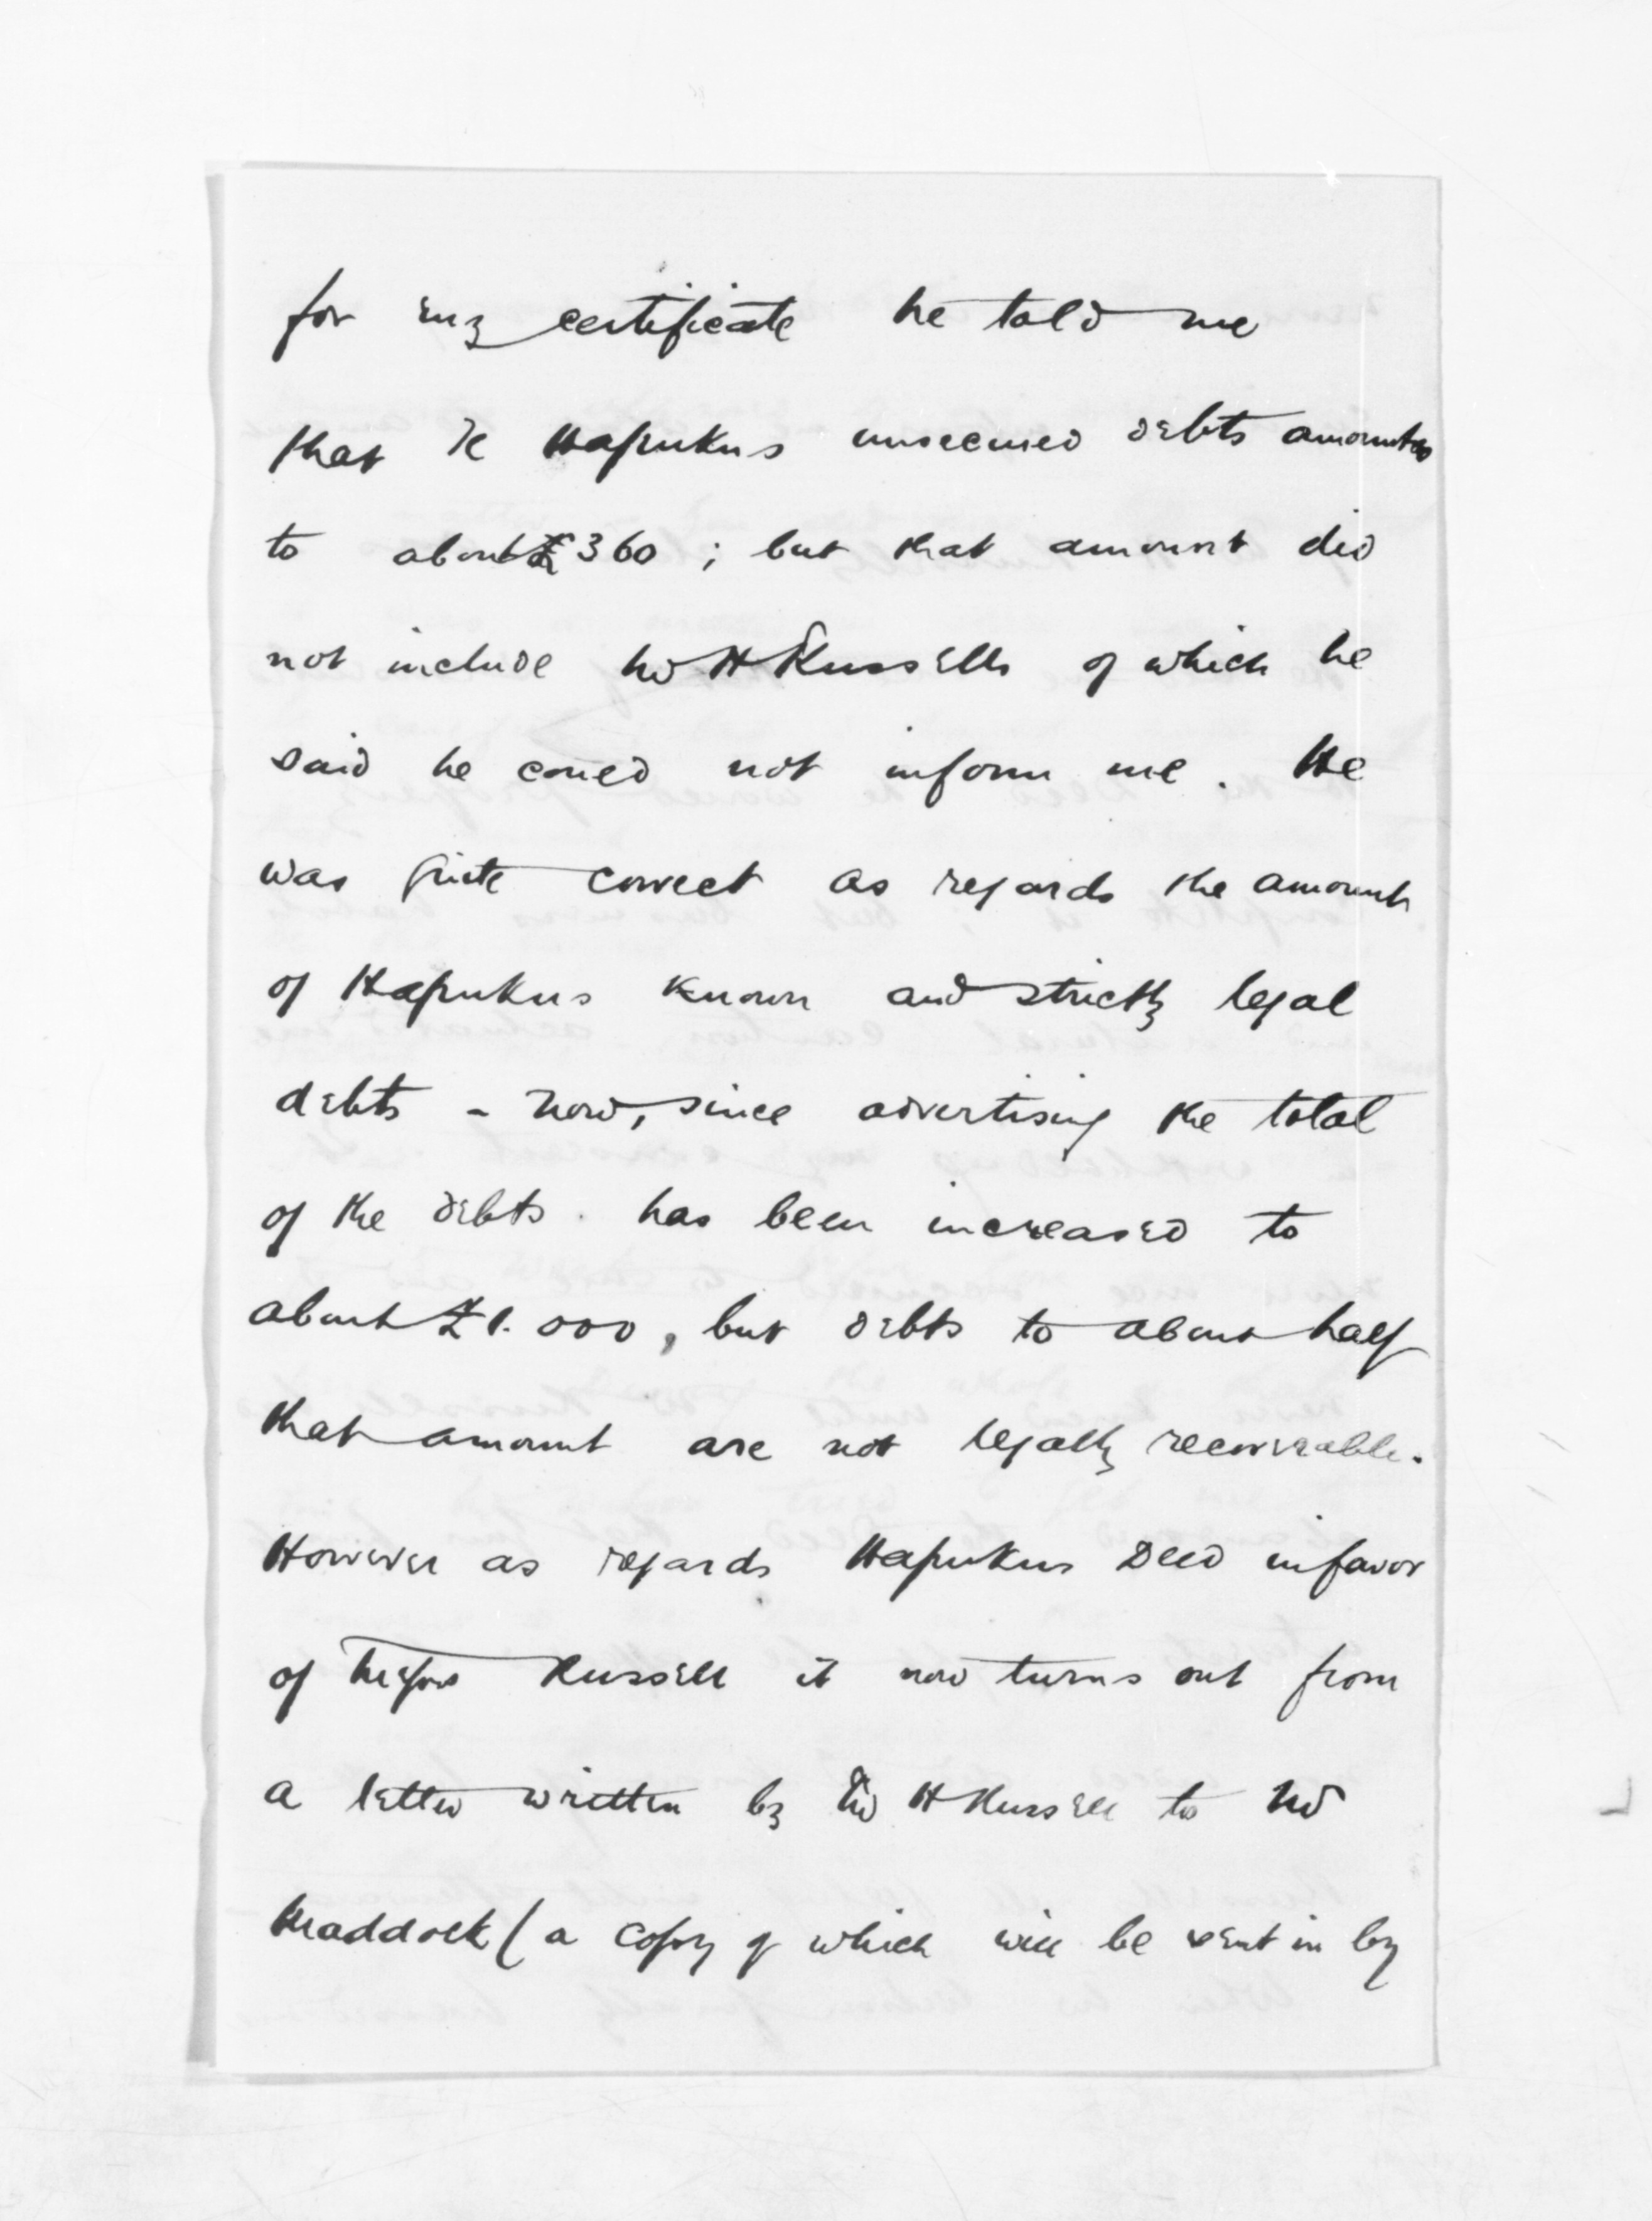 for my certificate he told me
that Te Hapukus unsecured debts amounted
to about £360 ; but that amount did
not include Mr H Russells of which he
said he could not inform me. He
was quite correct as regards the amount
of Hapukus known and strictly legal
debts - now, since advertising the total
of the debts. has been increased to
about £1.000, but debts to about half
that amount are not legally recoverable.
However as regards Hapukus Deed in favor
of Russell it now turns out from
a letter written by Mr H Russell to Mr
Maddock (a copy of which will be sent in by